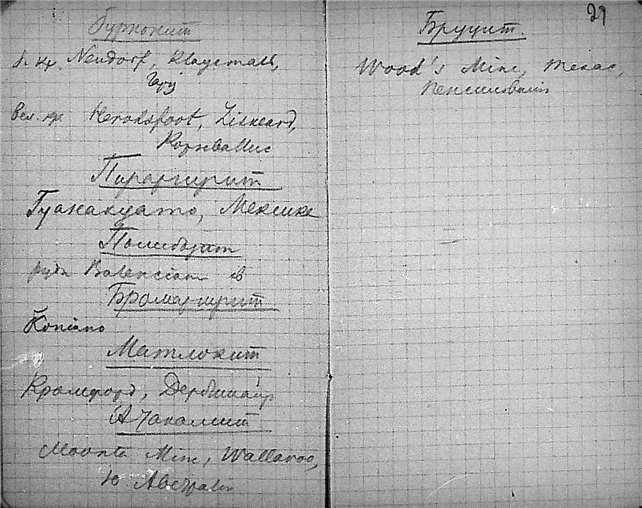 Бурнонит
б. кр. Neudorf,
Гарц
вел. кр. Herodsfoot, Liskeard,
Корнваллис
Пираргирит
Гуанахуато, Мексика
Полибазит
руды Valenciana в
Бромаргирит
Copiapo
Матлокит
Кромфорд, Дербишайр
Атакамит
Moonta Mine, Wallaroo,
Ю Австралия
29
Бруцит.
Wood's Mine, Техас,
Пенсильвания